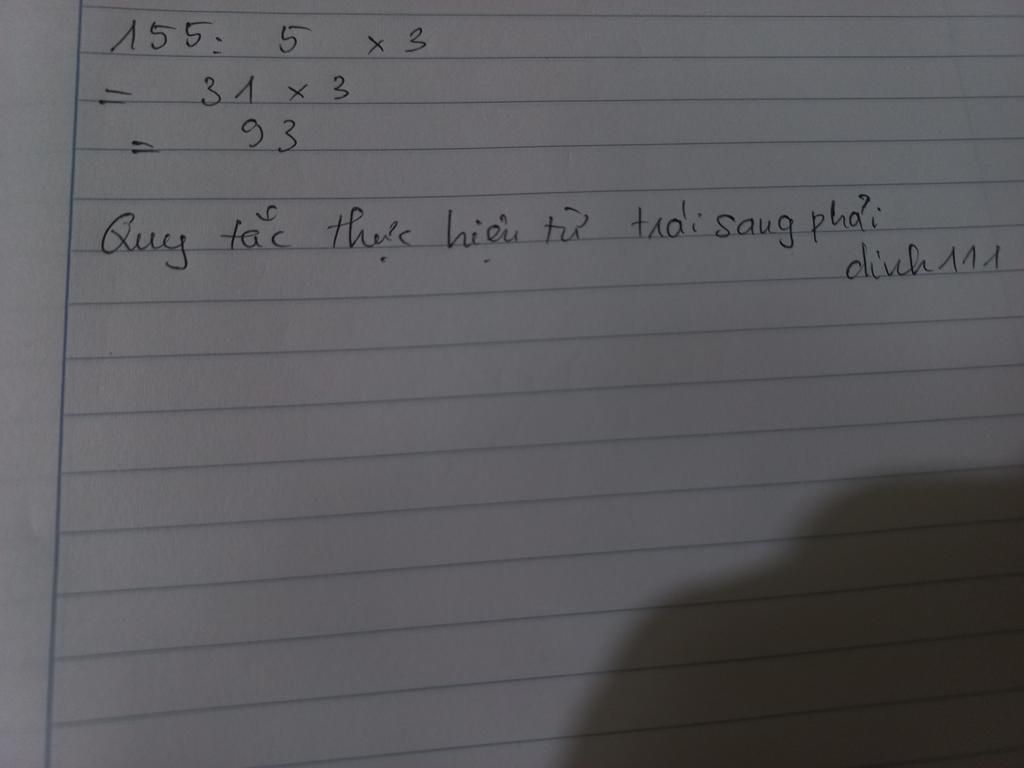 155: 5 × 3
= 31 × 3
= 93
Quy tắc thực hiện từ trái sang phải
dinh111